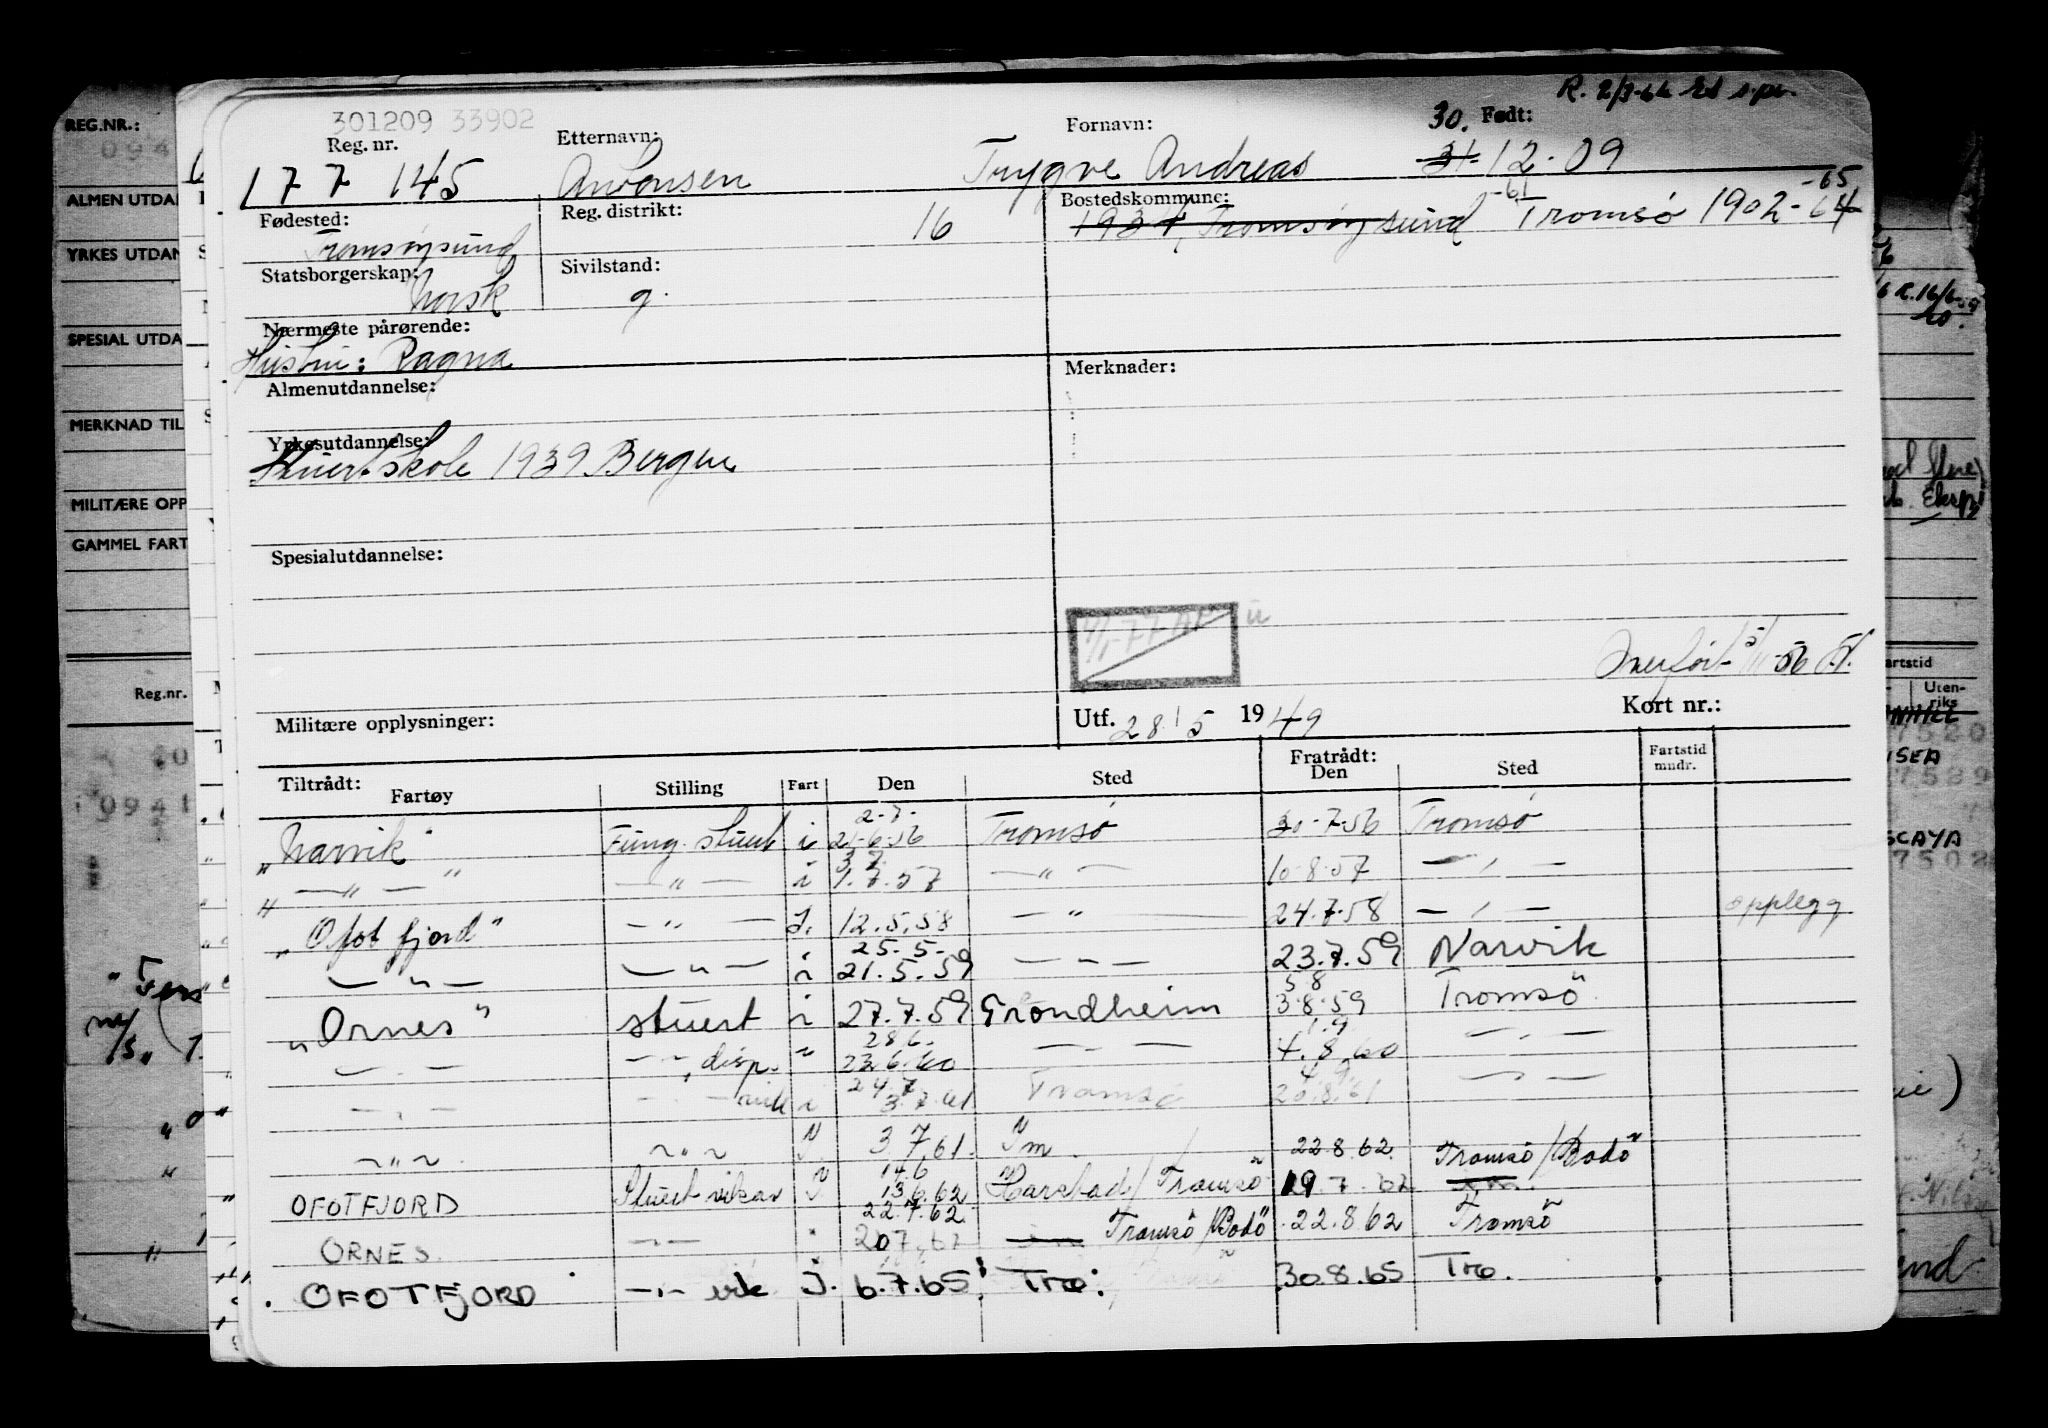 R. 2/3-66
301209 33902
Reg. nr. Etternavn: Fornavn: 30. Født:
177 145 Antonsen Trygve Andreas 31-12-09
Fødested: Reg. distrikt: Bostedskommune: -61 -65
Tromsøysund 16 1934, Tromsøysund Tromsø 1902-64
Statsborgerskap: Sivilstand:
Norsk g.
Nærmeste pårørende:
Hustru: Ragna
Almenutdannelse: Merknader:
Yrkesutdannelse:
Stuertskole 1939 Bergen
Spesialutdannelse:
Overført 5/11-56
Militære opplysninger: Utf. 28/5 1949 Kort nr.:
Tiltrådt: Fratrådt:
Fartøy Stilling Fart Den Sted Den Sted Fartstid mndr.
2-7-
"Narvik" Fung. stuert i 21-6-56 Tromsø 30-7-56 Tromsø
3 7
" — " — " — " — i 1.7.57 — " — 10-8-57 — " —
"Ofotfjord" — " — I. 12.5.58 — " — 24.7.58 — " — opplegg
25-5-
— " — — " — i 21.5.59 — " — 23.7.59 Narvik
5 8
"Ornes" stuert i 27.7.59 Trondheim 3-8-59 Tromsö
28 6. 1.9
— " — — " — disp. " 23.6.60 — " — 4.8.60 — " —
24.7 4.9.
— " — — " — vik i 3.7.61 Tromsø 20.8.61 — " —
— " — — " — 3.7.61. Tm. 22.8.62. Tromsö/Bodö
14 6
OFOTFJORD Stuert vikar I 13.6.62 Harstad/Tromsö 19.7.62
22.7.62
ORNES. — " — 20 7.62 Tromsö/Bodö 22.8 62 Tromsö
OFOTFJORD — " — vik I. 6.7.65 Trø. 30.8.65 Trø.
REG.NR.:
094
ALMEN UTDA
YRKES UTDAN
SPESIAL UTDA
MERKNAD TIL
MILITÆRE OPP
GAMMEL FART
Reg.nr.
0941
R.16/6-59
artstid
Uten-
riks
7520
7589
SCAYA
7502